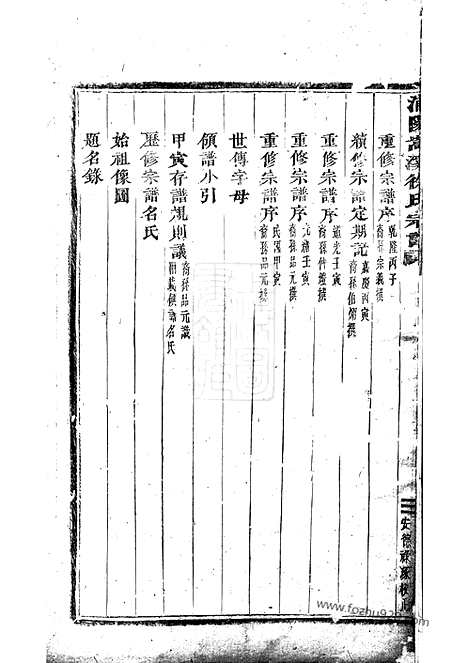 徐氏宗譜
重修宗譜序 乾隆丙子 裔孫宗義撰
續修宗譜定期記 嘉慶丙寅 裔孫伯 撰
重修宗譜序 道光壬寅 裔孫 撰
重修宗譜序 壬寅 裔孫品元撰
重修宗譜序 民國甲寅 裔孫品元撰
世傳字母
領譜小引
甲寅存譜規則議 裔孫品元議 名氏
歷修宗譜名氏
始祖像圖
題名錄
安德
www.fozhu920.com